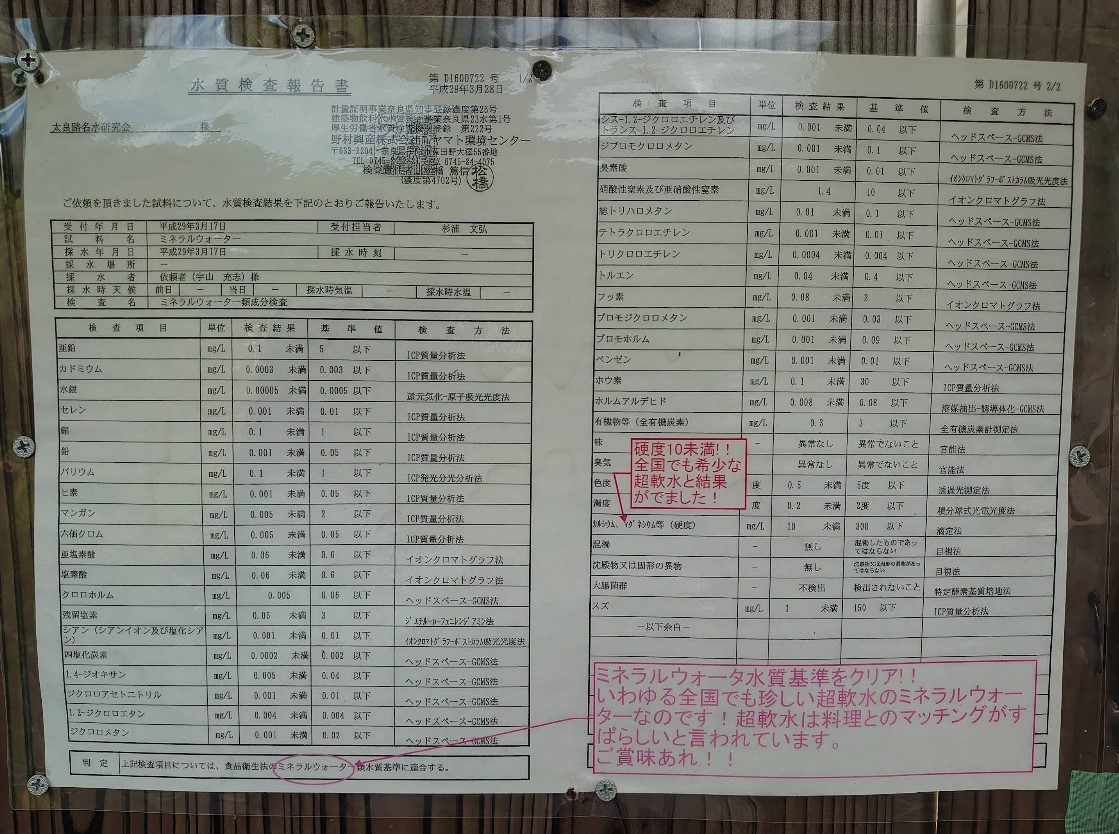 水質検査報告書
第 D1600722 号 1/2
平成29年3月28日
太良路名水研究会 様
計量証明事業奈良県知事登録濃度第28号
厚生労働省 第222号
野村興産株式会社 ヤマト環境センター
(濃度第4702号)
ご依頼を頂きました試料について、水質検査結果を下記のとおりご報告いたします。
受付年月日 平成29年3月17日 受付担当者 杉浦 文弘
試料名 ミネラルウォーター
採水年月日 平成29年3月17日 採水時刻 －
採水場所 －
採水者 依頼者（宇山 充志）様
採水時天候 前日 － 当日 － 採水時気温 － 採水時水温 －
検査名 ミネラルウォーター類成分検査
検査項目 単位 検査結果 基準値 検査方法
亜鉛 mg/L 0.1 未満 5 以下 ICP質量分析法
カドミウム mg/L 0.0003 未満 0.003 以下 ICP質量分析法
水銀 mg/L 0.00005 未満 0.0005 以下 還元気化-原子吸光光度法
セレン mg/L 0.001 未満 0.01 以下 ICP質量分析法
銅 mg/L 0.1 未満 1 以下 ICP質量分析法
鉛 mg/L 0.001 未満 0.05 以下 ICP質量分析法
バリウム mg/L 0.1 未満 1 以下 ICP発光分光分析法
ヒ素 mg/L 0.001 未満 0.05 以下 ICP質量分析法
マンガン mg/L 0.005 未満 2 以下 ICP質量分析法
六価クロム mg/L 0.005 未満 0.05 以下 ICP質量分析法
亜塩素酸 mg/L 0.06 未満 0.6 以下 イオンクロマトグラフ法
塩素酸 mg/L 0.06 未満 0.6 以下 イオンクロマトグラフ法
クロロホルム mg/L 0.005 0.06 以下 ヘッドスペース-GCMS法
残留塩素 mg/L 0.05 未満 3 以下 ジエチル-p-フェニレンジアミン法
シアン（シアンイオン及び塩化シアン） mg/L 0.001 未満 0.01 以下 イオンクロマトグラフ-ポストカラム吸光光度法
四塩化炭素 mg/L 0.0002 未満 0.002 以下 ヘッドスペース-GCMS法
1,4-ジオキサン mg/L 0.005 未満 0.04 以下 ヘッドスペース-GCMS法
ジクロロアセトニトリル mg/L 0.001 未満 0.01 以下 ヘッドスペース-GCMS法
1,2-ジクロロエタン mg/L 0.004 未満 0.004 以下 ヘッドスペース-GCMS法
ジクロロメタン mg/L 0.001 未満 0.02 以下 ヘッドスペース-GCMS法
判定 上記検査項目については、食品衛生法のミネラルウォーター類水質基準に適合する。
第 D1600722 号 2/2
検査項目 単位 検査結果 基準値 検査方法
シス-1,2-ジクロロエチレン及びトランス-1,2-ジクロロエチレン mg/L 0.001 未満 0.04 以下 ヘッドスペース-GCMS法
ジブロモクロロメタン mg/L 0.001 未満 0.1 以下 ヘッドスペース-GCMS法
臭素酸 mg/L 0.001 未満 0.01 以下 イオンクロマトグラフ-ポストカラム吸光光度法
硝酸性窒素及び亜硝酸性窒素 mg/L 1.4 10 以下 イオンクロマトグラフ法
総トリハロメタン mg/L 0.01 未満 0.1 以下 ヘッドスペース-GCMS法
テトラクロロエチレン mg/L 0.001 未満 0.01 以下 ヘッドスペース-GCMS法
トリクロロエチレン mg/L 0.0004 未満 0.004 以下 ヘッドスペース-GCMS法
トルエン mg/L 0.04 未満 0.4 以下 ヘッドスペース-GCMS法
フッ素 mg/L 0.08 未満 2 以下 イオンクロマトグラフ法
ブロモジクロロメタン mg/L 0.001 未満 0.03 以下 ヘッドスペース-GCMS法
ブロモホルム mg/L 0.001 未満 0.09 以下 ヘッドスペース-GCMS法
ベンゼン mg/L 0.001 未満 0.01 以下 ヘッドスペース-GCMS法
ホウ素 mg/L 0.1 未満 30 以下 ICP質量分析法
ホルムアルデヒド mg/L 0.008 未満 0.08 以下 溶媒抽出-誘導体化-GCMS法
有機物等（全有機炭素） mg/L 0.3 3 以下 全有機炭素計測定法
味 － 異常なし 異常でないこと 官能法
臭気 異常なし 異常でないこと 官能法
色度 度 0.5 未満 5度 以下 透過光測定法
濁度 度 0.2 未満 2度 以下 積分球式光電光度法
カルシウム、マグネシウム等（硬度） mg/L 10 未満 300 以下 滴定法
混濁 － 無し 混濁したものであってはならない 目視法
沈殿物又は固形の異物 － 無し 沈殿物又は固形の異物があってはならない 目視法
大腸菌群 － 不検出 検出されないこと 特定酵素基質培地法
スズ mg/L 1 未満 150 以下 ICP質量分析法
－以下余白－
硬度10未満!!
全国でも希少な
超軟水と結果
がでました！
ミネラルウォータ水質基準をクリア!!
いわゆる全国でも珍しい超軟水のミネラルウォー
ターなのです！超軟水は料理とのマッチングがす
ばらしいと言われています。
ご賞味あれ！！